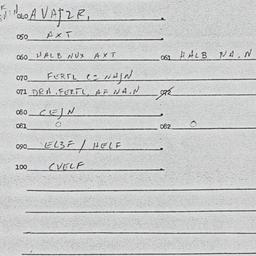 040 A VAJZR,
050 AXT
060 HALB NUX AXT 061 HALB NA.N
070 FERTL
071 DRA.FERTL, AF NA.N 072
080 CEJN
081 O 082 O
090 ELBF / HELF
100 CVELF